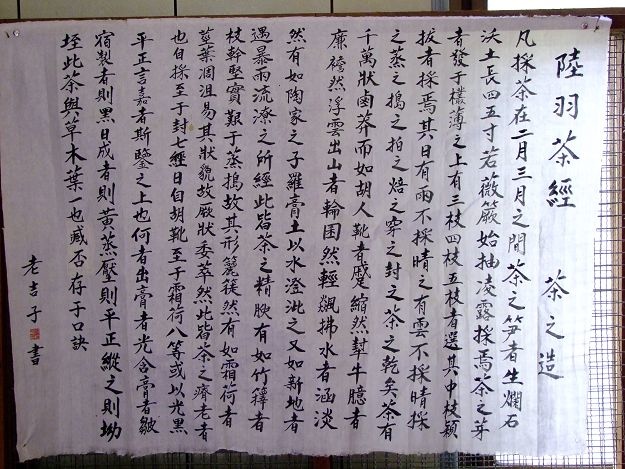 陸羽茶經　茶之造
凡採茶在二月三月之間茶之笋者生爛石
沃土長四五寸若薇蕨始抽凌露採焉茶之芽
者發于欉薄之上有三枝四枝五枝者選其中枝穎
拔者採焉其日有雨不採晴之有雲不採晴採
之蒸之搗之拍之焙之穿之封之茶之乾矣茶有
千萬狀鹵莽而如胡人靴者蹙縮然犎牛臆者
廉襜然浮雲出山者輪囷然輕飆拂水者涵淡
然有如陶家之子羅膏土以水澄泚之又如新地者
遇暴雨流潦之所經此皆茶之精腴有如竹籜者
枝幹堅實艱于蒸搗故其形簏簁然有如霜荷者
莖葉凋沮易其狀貌故厥狀委萃然此皆茶之瘠老者
也自採至于封七經日自胡靴至于霜荷八等或以光黑
平正言嘉者斯鑒之上也何者出膏者光含膏者皺
宿製者則黑日成者則黃蒸壓則平正縱之則坳
垤此茶與草木葉一也臧否存于口訣
老吉子書